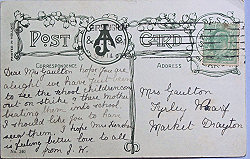 POST CARD
A & G
CORRESPONDENCE
ADDRESS
Dear Mrs Gaulton hope you are
alright we have just been
to see the school children come
out on strike & their mothers
beating them into school
I should like you to have
seen them. I hope Mrs
is feeling better love to all
from J. W.
Mrs Gaulton
Tyrley Wharf
Market Drayton